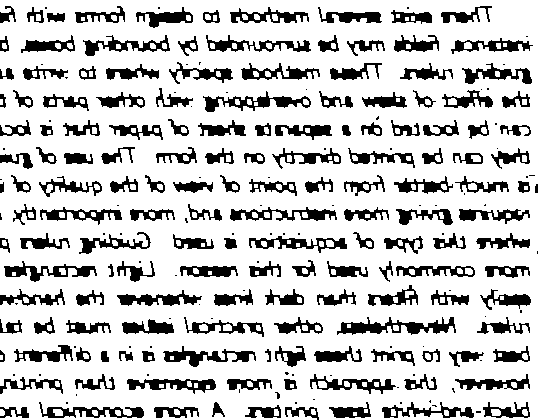 There exist several methods to design forms with fi
instance, fields may be surrounded by bounding boxes, b
guiding rulers. These methods specify where to write a
the effect of skew and overlapping with other parts of t
can be located on a separate sheet of paper that is loca
they can be printed directly on the form. The use of gui
is much better from the point of view of the quality of
requires giving more instructions and, more importantly,
where this type of acquisition is used. Guiding rulers p
more commonly used for this reason. Light rectangles
easily with filters than dark lines whenever the handw
rulers. Nevertheless, other practical issues must be tak
best way to print these light rectangles is in a different c
however, this approach is more expensive than printing
black-and-white laser printers. A more economical and